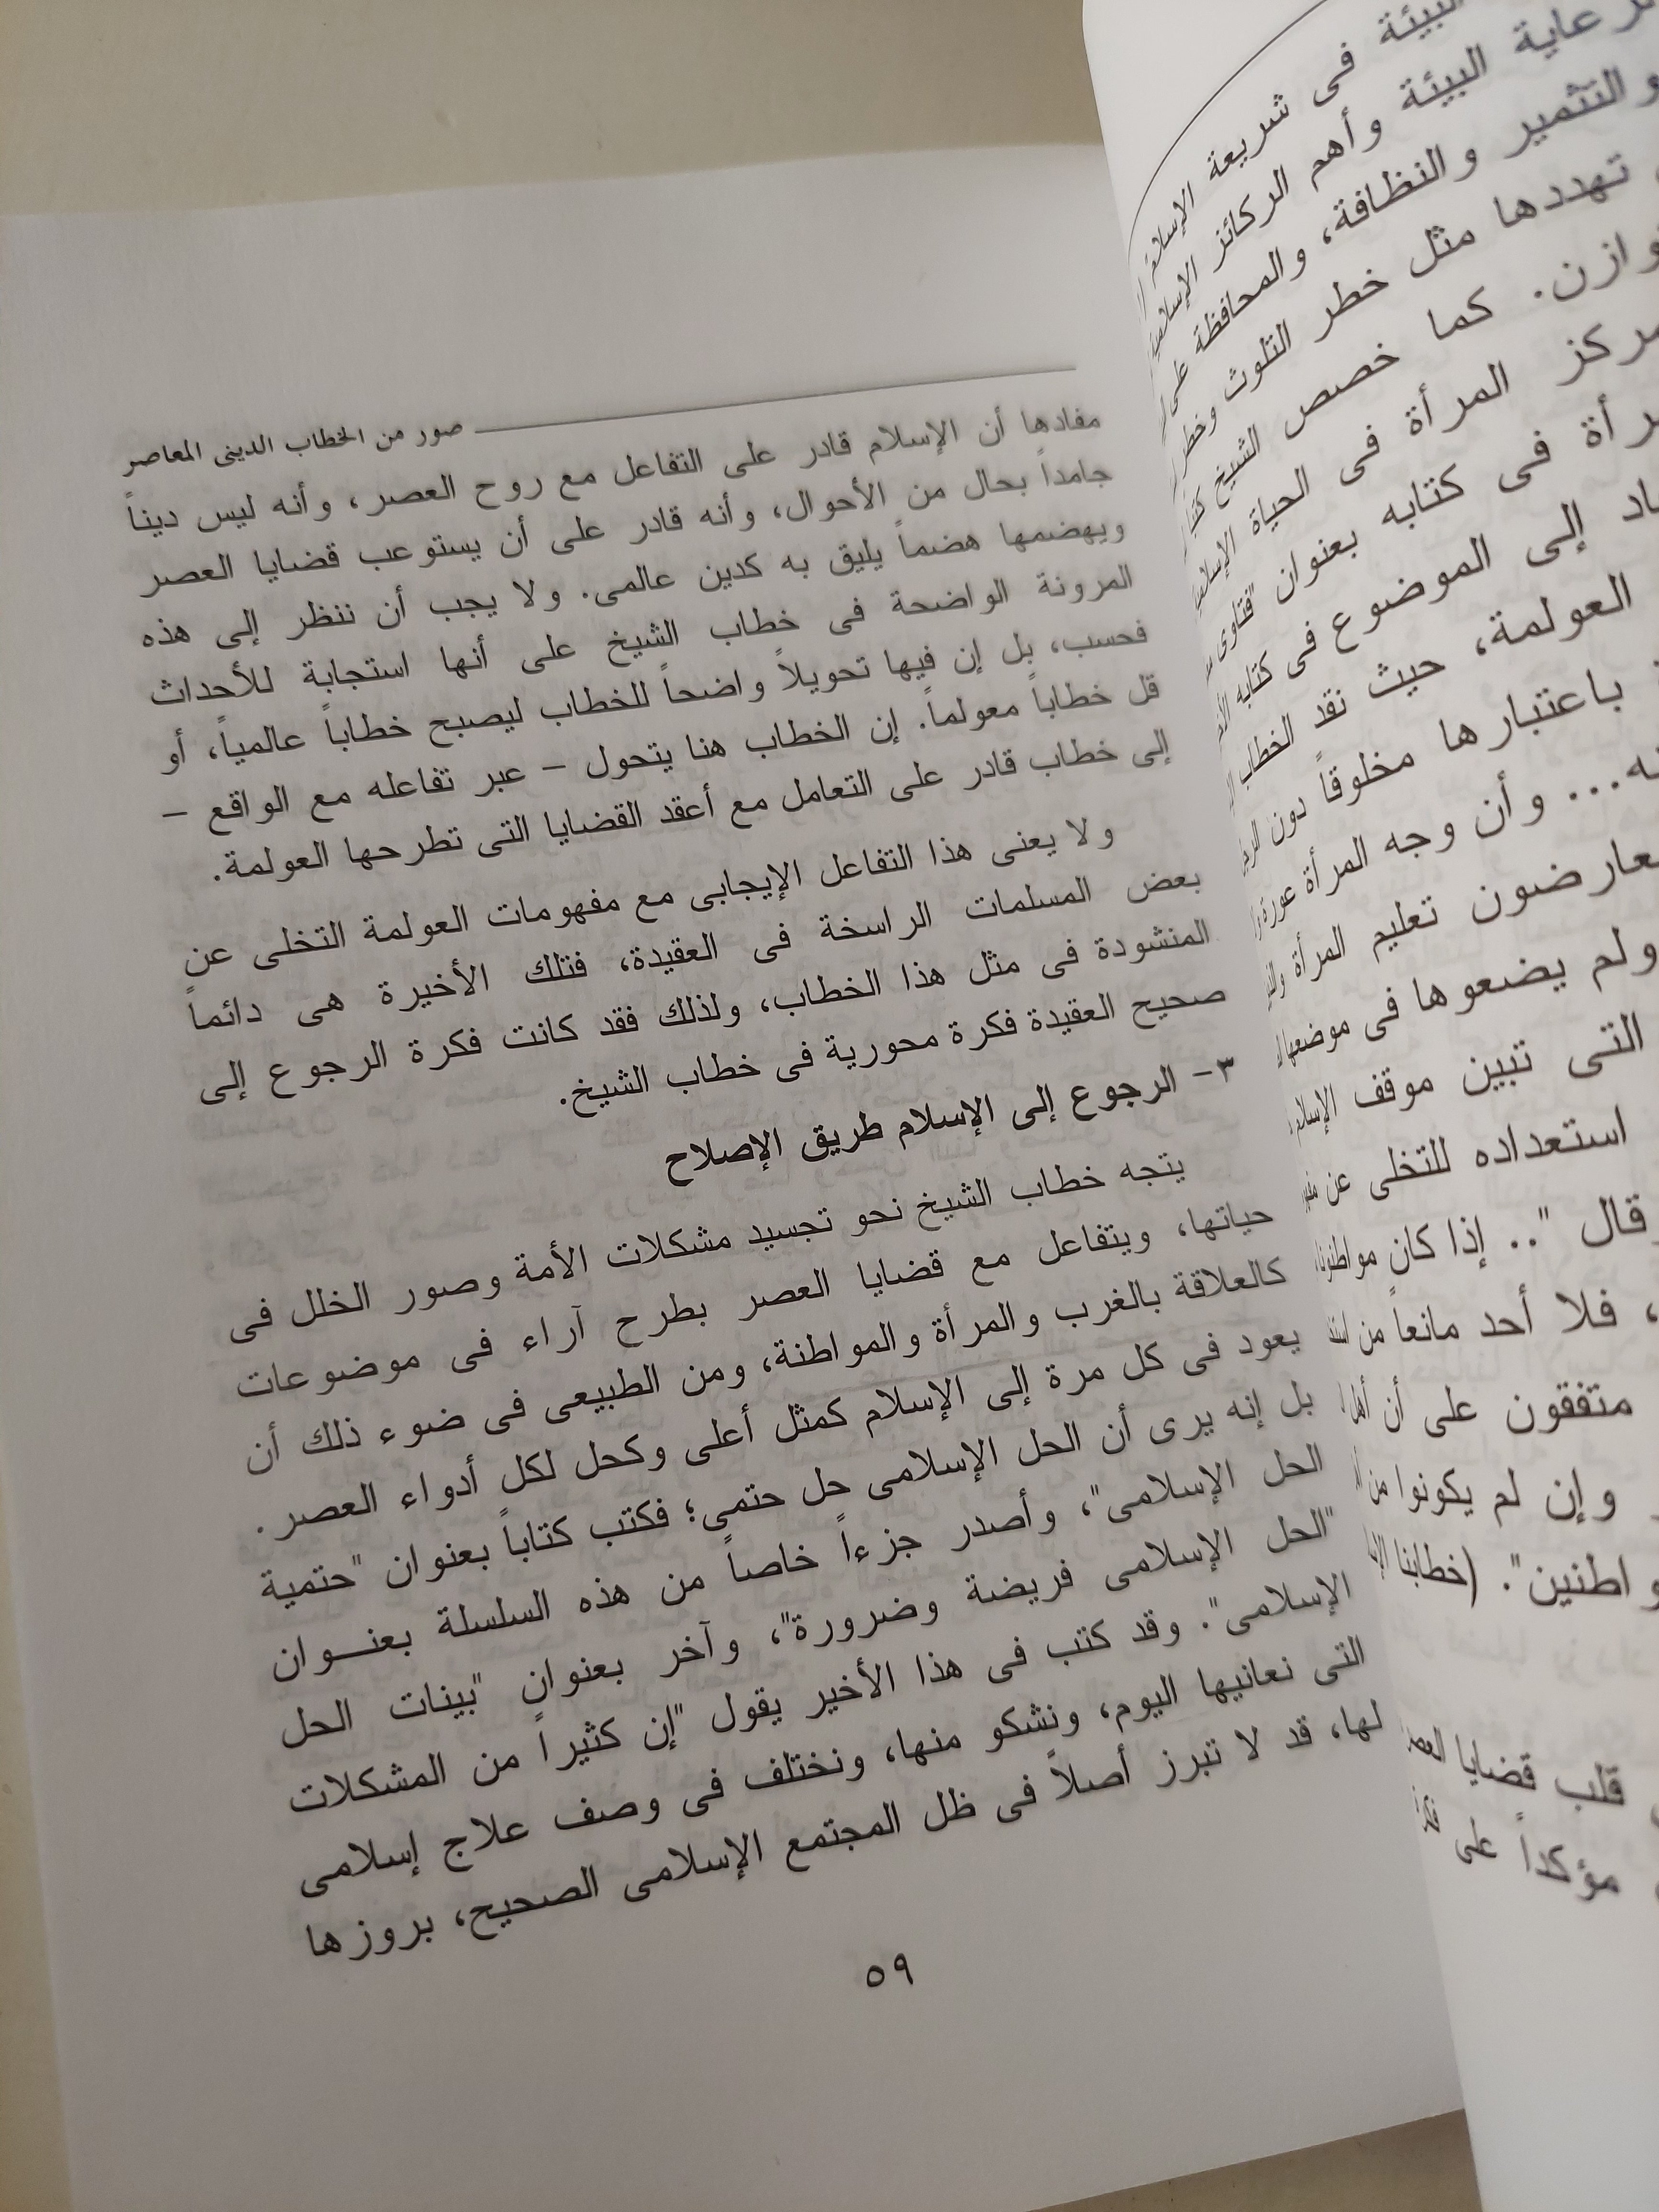 صور من الخطاب الدينى المعاصر
مفادها أن الإسلام قادر على التفاعل مع روح العصر، وأنه ليس ديناً
جامداً بحال من الأحوال، وأنه قادر على أن يستوعب قضايا العصر
ويهضمها هضماً يليق به كدين عالمى. ولا يجب أن ننظر إلى هذه
المرونة الواضحة فى خطاب الشيخ على أنها استجابة للأحداث
فحسب، بل إن فيها تحويلاً واضحاً للخطاب ليصبح خطاباً عالمياً، أو
قل خطاباً معولماً. إن الخطاب هنا يتحول – عبر تفاعله مع الواقع –
إلى خطاب قادر على التعامل مع أعقد القضايا التى تطرحها العولمة.
ولا يعنى هذا التفاعل الإيجابى مع مفهومات العولمة التخلى عن
بعض المسلمات الراسخة فى العقيدة، فتلك الأخيرة هى دائماً
المنشودة فى مثل هذا الخطاب، ولذلك فقد كانت فكرة الرجوع إلى
صحيح العقيدة فكرة محورية فى خطاب الشيخ.
٣- الرجوع إلى الإسلام طريق الإصلاح
يتجه خطاب الشيخ نحو تجسيد مشكلات الأمة وصور الخلل فى
حياتها، ويتفاعل مع قضايا العصر بطرح آراء فى موضوعات
كالعلاقة بالغرب والمرأة والمواطنة، ومن الطبيعى فى ضوء ذلك أن
يعود فى كل مرة إلى الإسلام كمثل أعلى وكحل لكل أدواء العصر.
بل إنه يرى أن الحل الإسلامى حل حتمى؛ فكتب كتاباً بعنوان "حتمية
الحل الإسلامى"، وأصدر جزءاً خاصاً من هذه السلسلة بعنـــوان
"الحل الإسلامى فريضة وضرورة"، وآخر بعنوان "بينات الحل
الإسلامى". وقد كتب فى هذا الأخير يقول "إن كثيراً من المشكلات
التى نعانيها اليوم، ونشكو منها، ونختلف فى وصف علاج إسلامى
لها، قد لا تبرز أصلاً فى ظل المجتمع الإسلامى الصحيح، بروزها
٥٩
البيئة فى شريعة الإسلام
رعاية البيئة وأهم الركائز الإسلامية
والتثمير والنظافة، والمحافظة على
تهددها مثل خطر التلوث وخطر
كما خصص الشيخ
مركز المرأة فى الحياة
فى كتابه بعنوان "فتاوى
إلى الموضوع فى كتابه
العولمة، حيث نقد الخطاب
باعتبارها مخلوقاً دون
... وأن وجه المرأة عورة
تعليم المرأة
ولم يضعوها فى موضعها
التى تبين موقف الإسلام
استعداده للتخلى عن
قال ".. إذا كان
، فلا أحد مانعاً من
متفقون على أن
وإن لم يكونوا من
(خطابنا
قلب قضايا العصر
مؤكداً على